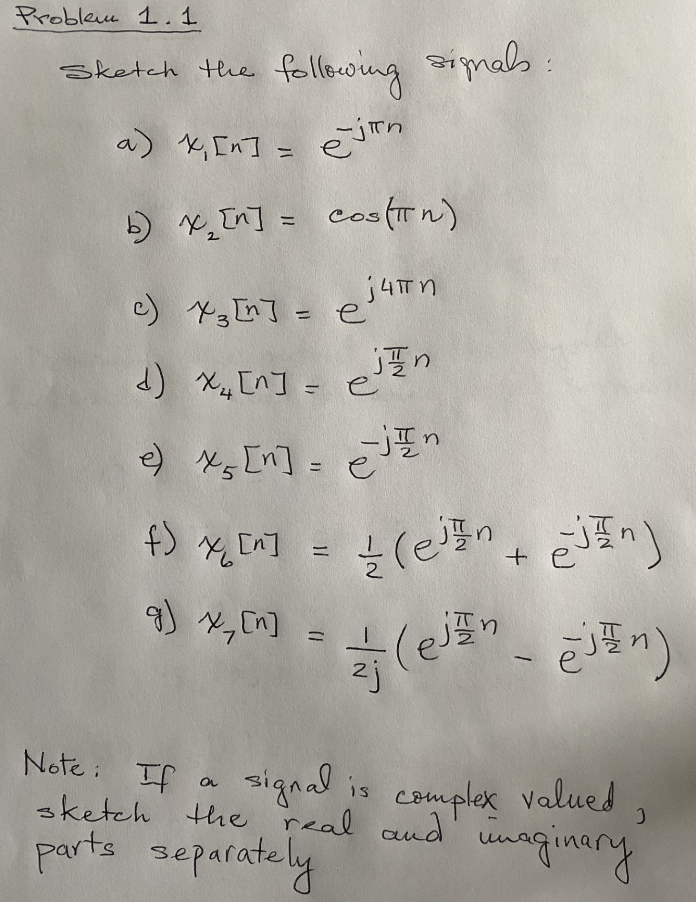 Problem 1.1
Sketch the following signals:
a) x₁[n] = e^{-jπn}
b) x₂[n] = cos(πn)
c) x₃[n] = e^{j4πn}
d) x₄[n] = e^{j\frac{π}{2}n}
e) x₅[n] = e^{-j\frac{π}{2}n}
f) x₆[n] = \frac{1}{2}(e^{j\frac{π}{2}n} + e^{-j\frac{π}{2}n})
g) x₇[n] = \frac{1}{2j}(e^{j\frac{π}{2}n} - e^{-j\frac{π}{2}n})
Note: If a signal is complex valued,
sketch the real and imaginary
parts separately